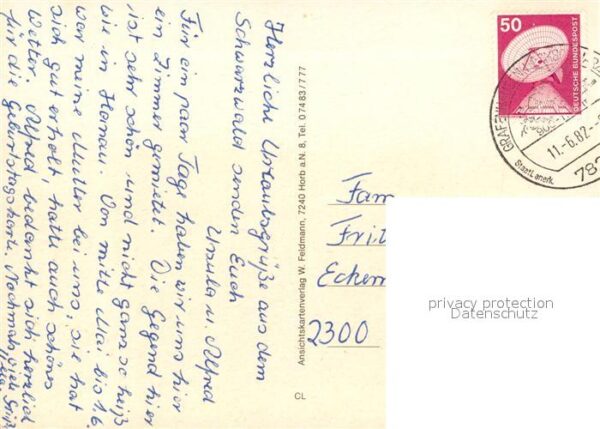 Herzliche Urlaubsgrüße aus dem
Schwarzwald senden Euch
Ursula u. Alfred
Für ein paar Tage haben wir uns hier
ein Zimmer gemietet. Die Gegend hier
ist sehr schön und nicht ganz so heiß
wie in Hanau. Von mitte Mai bis 1.6.
war meine Mutter bei uns, sie hat
sich gut erholt, hatte auch schönes
Wetter. Alfred bedankt sich herzlich
für die Geburtstagskarte. Nochmals viele Grüße
Ansichtskartenverlag W. Feldmann, 7240 Horb a.N. 8, Tel. 07483/777
CL
50
DEUTSCHE BUNDESPOST
GRAFENH
11.-6.82.-
Staatl. anerk.
782
Fam
Frit
Eckern
2300
privacy protection
Datenschutz